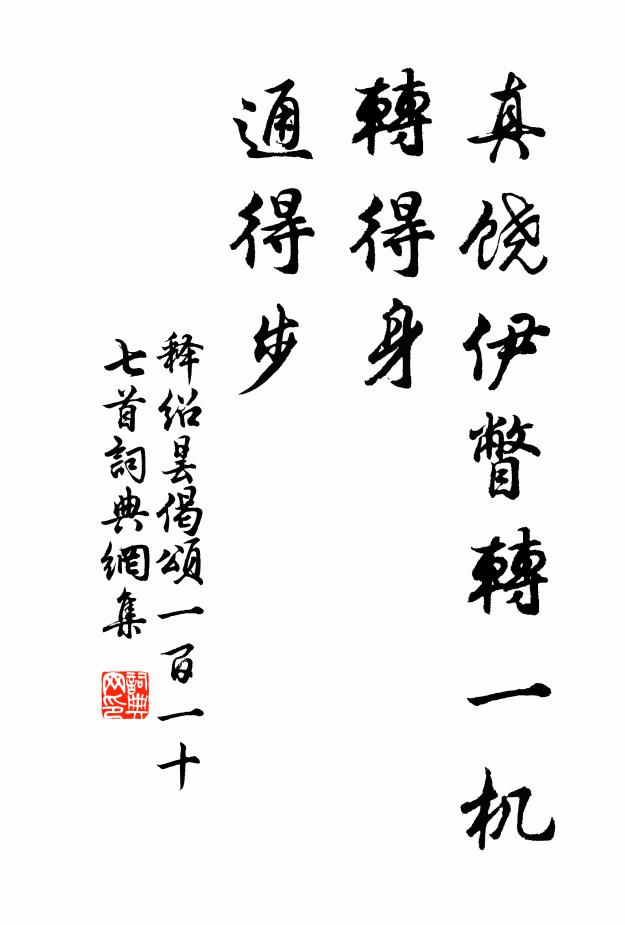 真饶伊瞥轉一机
轉得身
通得步
释绍昙偈頌一百一十
七首詞典網集
詞典
网印